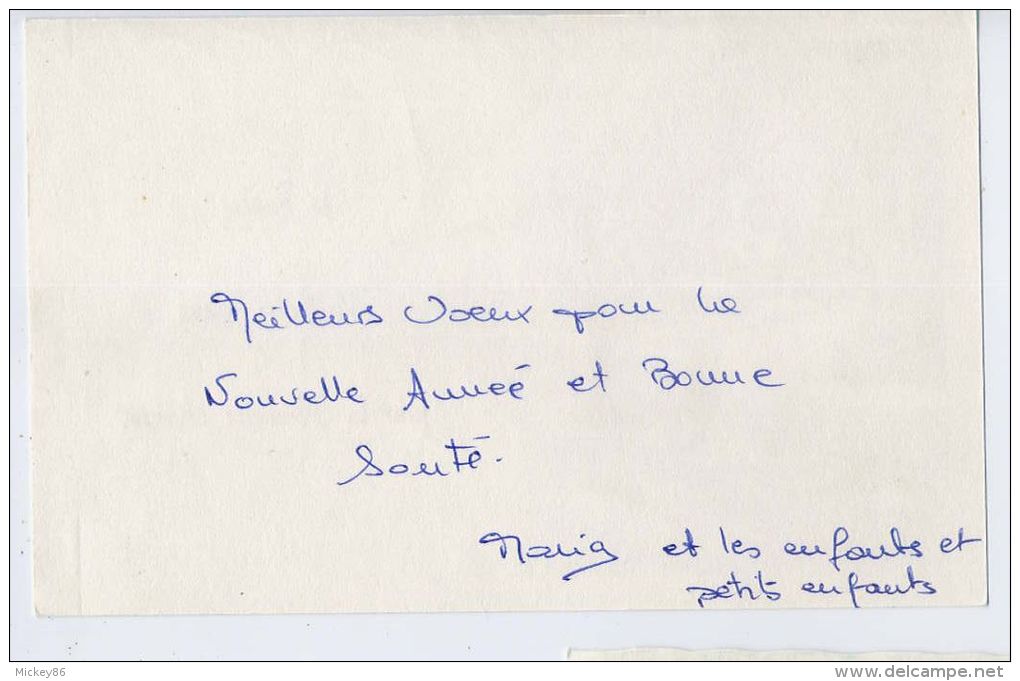 Meilleurs Voeux pour la
Nouvelle Année et Bonne
Santé.
Maria et les enfants et
petits enfants
Mickey86
www.delcampe.net